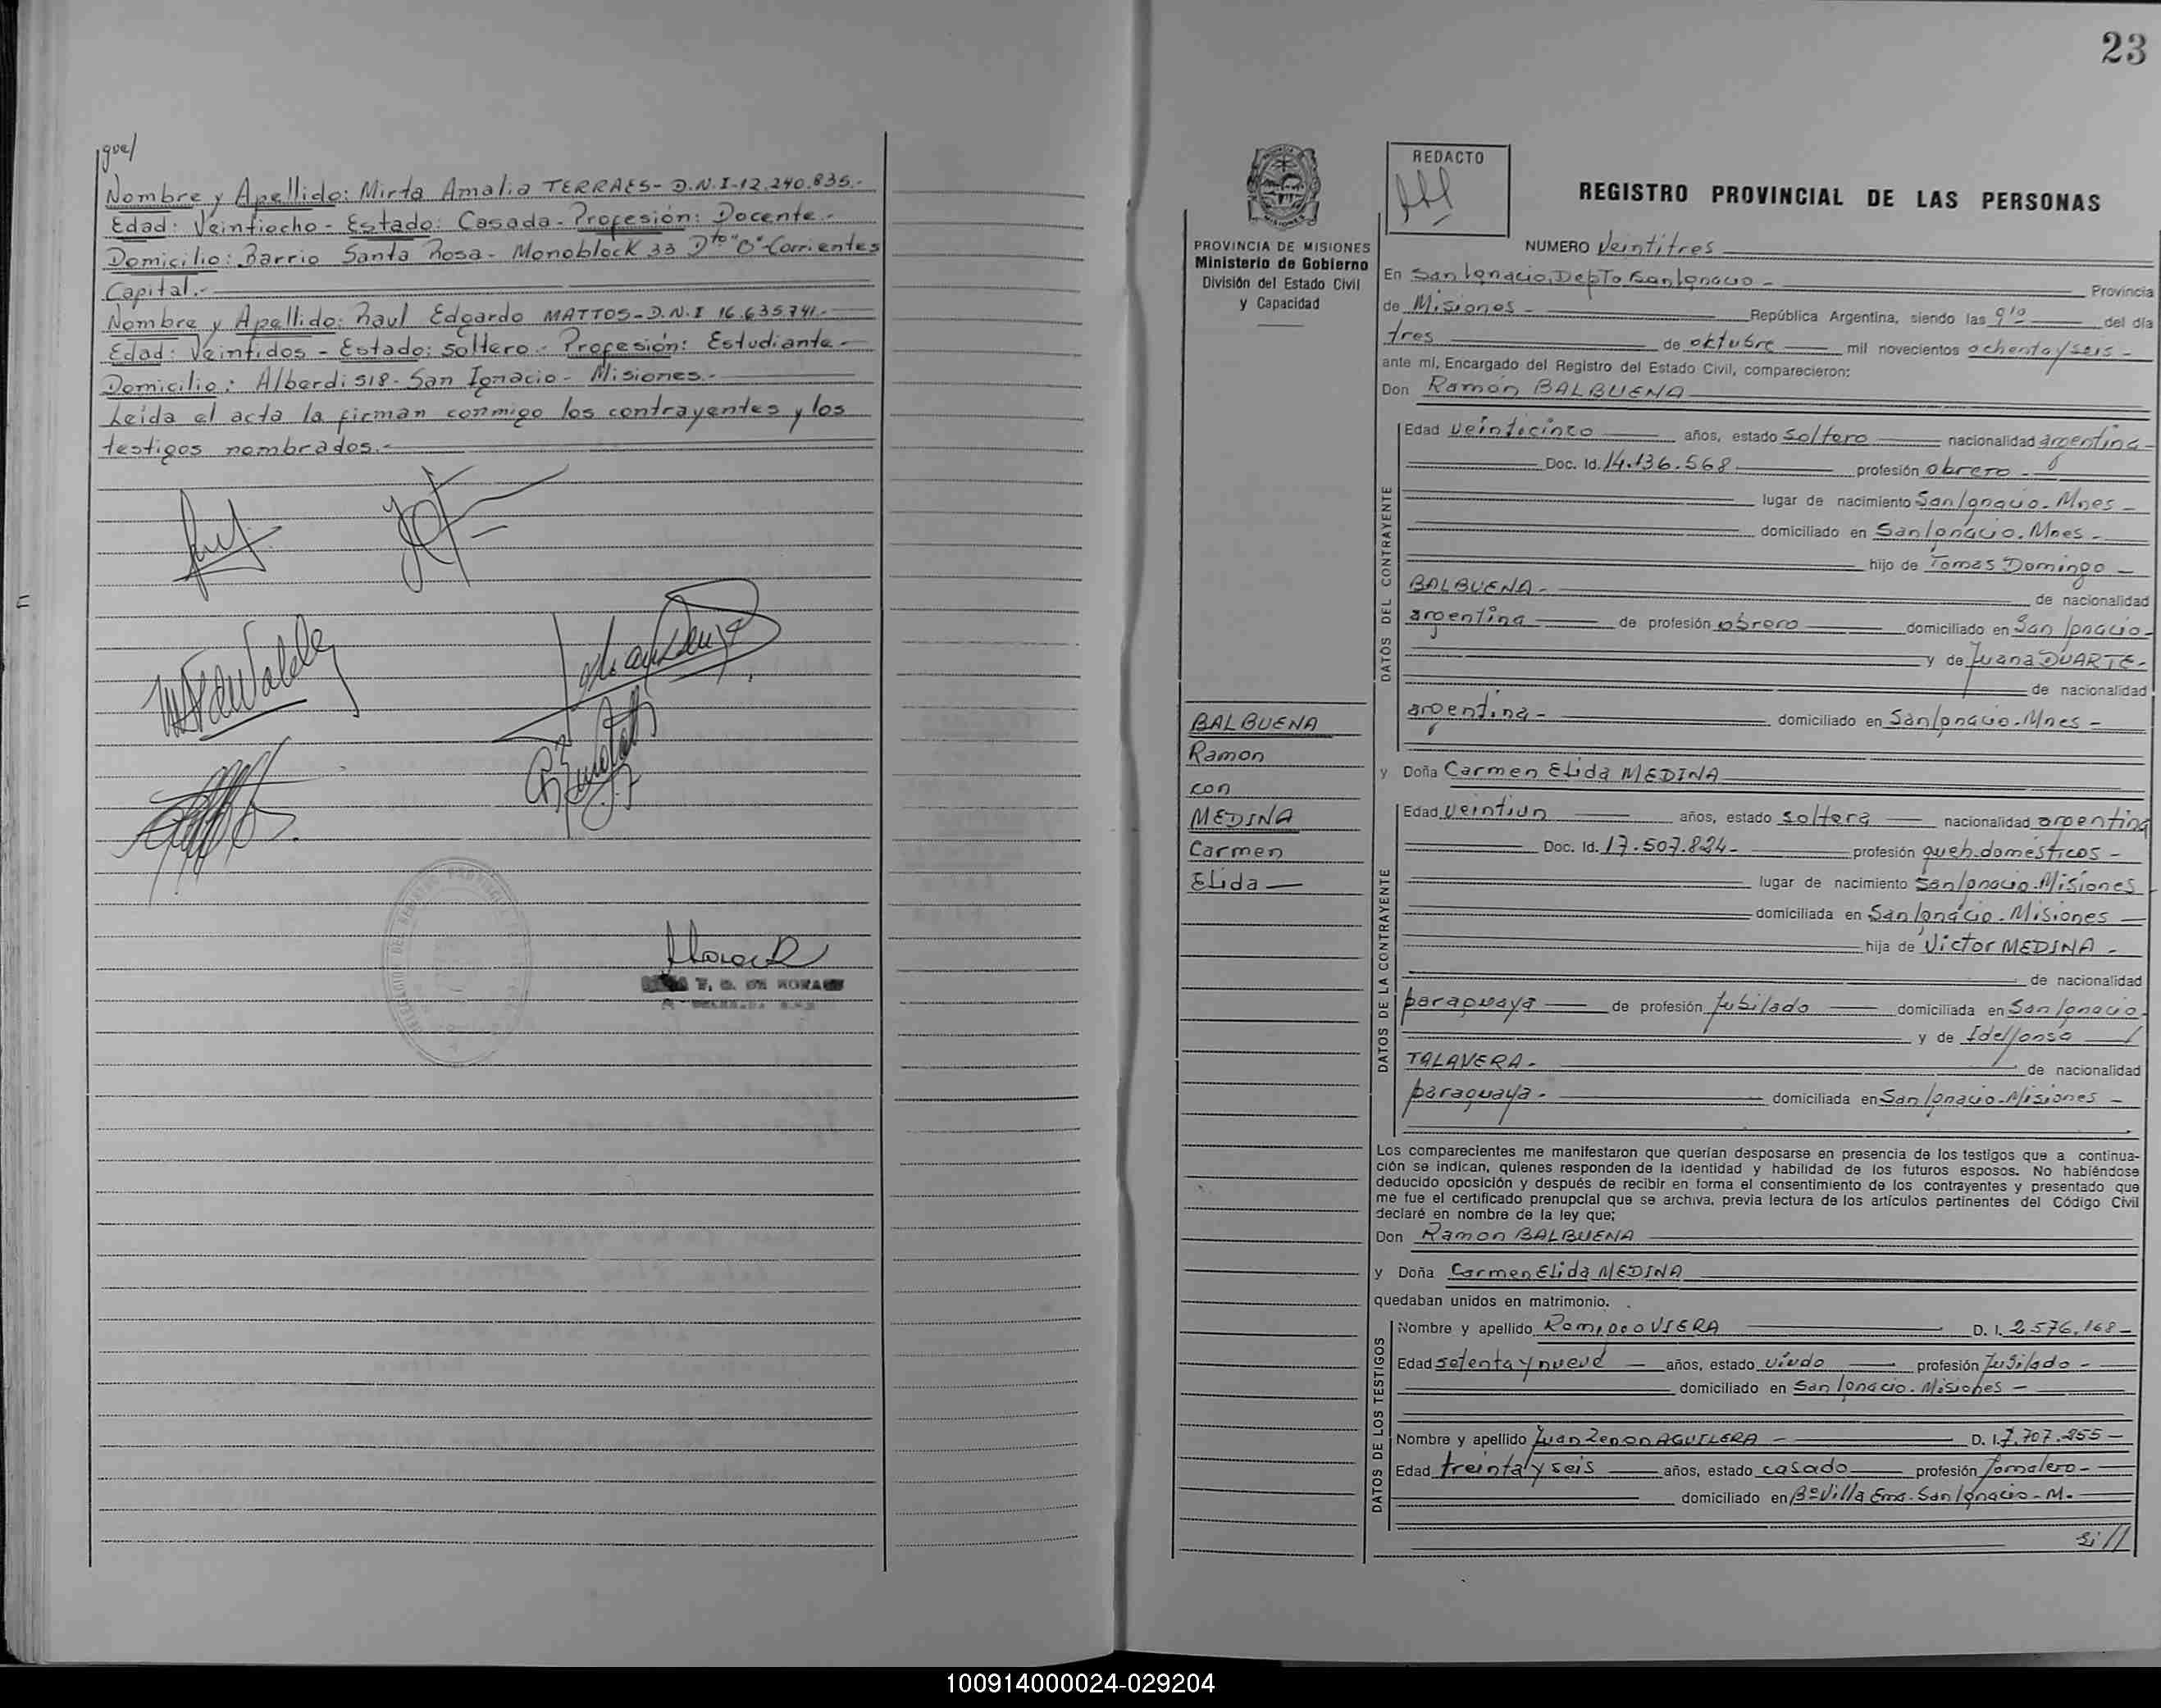 gue/
Nombre y Apellido: Mirta Amalia TERRAES- D.N.I-12.240.835.-
Edad: Veintiocho - Estado: Casada - Profesión: Docente.-
Domicilio: Barrio Santa Rosa - Monoblock 33 Dto "B"-Corrientes
Capital.-
Nombre y Apellido: Raul Edgardo MATTOS-D.N.I 16.635.741.-
Edad: Veintidos - Estado: Soltero.- Profesión: Estudiante.-
Domicilio: Alberdi 518- San Ignacio - Misiones.-
Leída el acta la firman conmigo los contrayentes y los
testigos nombrados.-
23
REDACTO
REGISTRO PROVINCIAL DE LAS PERSONAS
PROVINCIA DE MISIONES
Ministerio de Gobierno
División del Estado Civil
y Capacidad
NUMERO Veintitres
En San Ignacio, Depto San Ignacio - Provincia
de Misiones - República Argentina, siendo las 9/10 del día
tres de oktubre mil novecientos ochenta y seis -
ante mí, Encargado del Registro del Estado Civil, comparecieron:
Don Ramón BALBUENA
DATOS DEL CONTRAYENTE
Edad veinticinco años, estado soltero nacionalidad argentina -
Doc. Id. 14.136.568 profesión obrero -
lugar de nacimiento San Ignacio - Mnes -
domiciliado en San Ignacio. Mnes -
hijo de Tomas Domingo -
BALBUENA - de nacionalidad
argentina de profesión obrero domiciliado en San Ignacio -
y de Juana DUARTE -
de nacionalidad
argentina - domiciliado en San Ignacio - Mnes -
BALBUENA
Ramon
con
MEDINA
Carmen
Elida
y Doña Carmen Elida MEDINA
DATOS DE LA CONTRAYENTE
Edad veintiun años, estado soltera nacionalidad argentina
Doc. Id. 17.507.824 - profesión queh. domesticos -
lugar de nacimiento San Ignacio - Misiones
domiciliada en San Ignacio - Misiones
hija de Victor MEDINA -
de nacionalidad
paraguaya de profesión Jubilado domiciliada en San Ignacio -
y de Idelfonsa
TALAVERA - de nacionalidad
paraguaya - domiciliada en San Ignacio - Misiones -
Los comparecientes me manifestaron que querían desposarse en presencia de los testigos que a continua-
ción se indican, quienes responden de la identidad y habilidad de los futuros esposos. No habiéndose
deducido oposición y después de recibir en forma el consentimiento de los contrayentes y presentado que
me fue el certificado prenupcial que se archiva, previa lectura de los artículos pertinentes del Código Civil
declaré en nombre de la ley que;
Don Ramon BALBUENA
y Doña Carmen Elida MEDINA
quedaban unidos en matrimonio.
DATOS DE LOS TESTIGOS
Nombre y apellido VIERA D. I. 2.576.168 -
Edad setenta y nueve años, estado viudo profesión Jubilado -
domiciliado en San Ignacio - Misiones -
Nombre y apellido Juan Zenon AGUILERA - D. I. 7.707.255 -
Edad treinta y seis años, estado casado profesión Jornalero -
domiciliado en Bº Villa Ema - San Ignacio - M.
100914000024-029204